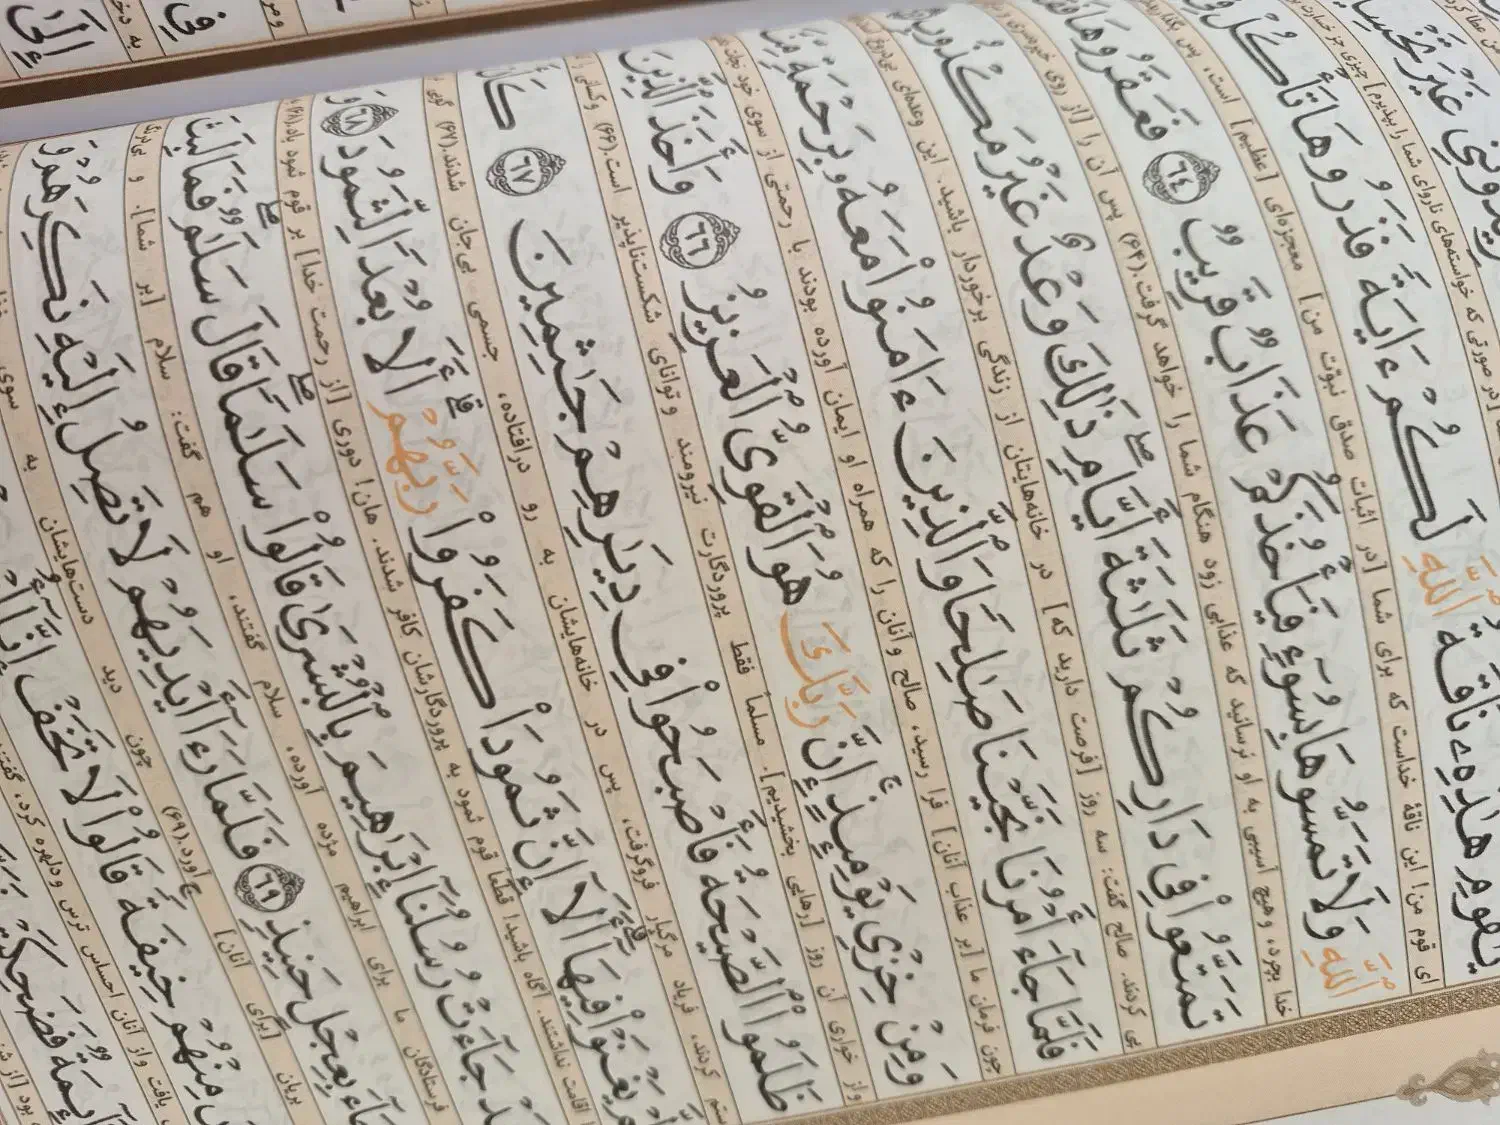 زيدُونَنِي غَيْرَ تَخْسِيرٍ
در صورتی که خواسته‌های ناروای شما را بپذیرم] چیزی جز خسارت
يَٰقَوْمِ هَٰذِهِۦ نَاقَةُ ٱللَّهِ لَكُمْ ءَايَةً فَذَرُوهَا تَأْكُلْ
ای قوم من! این ناقهٔ خداست که برای شما [در اثبات صدق نبوّت من] معجزه‌ای [عظیم] است، پس
ٱللَّهِ وَلَا تَمَسُّوهَا بِسُوٓءٍ فَيَأْخُذَكُمْ عَذَابٌ قَرِيبٌ ٦٤ فَعَقَرُوهَا
خدا بچرد، و هیچ آسیبی به او نرسانید که عذابی زود هنگام شما را خواهد گرفت.(۶۴) پس آن را [از روی
تَمَتَّعُوا۟ فِي دَارِكُمْ ثَلَٰثَةَ أَيَّامٍ ذَٰلِكَ وَعْدٌ غَيْرُ مَكْذُوبٍ
پی کردند. صالح گفت: سه روز [فرصت دارید که] در خانه‌هایتان از زندگی برخوردار باشید. این وعده‌ای بی‌دروغ
فَلَمَّا جَآءَ أَمْرُنَا نَجَّيْنَا صَٰلِحًا وَٱلَّذِينَ ءَامَنُوا۟ مَعَهُۥ بِرَحْمَةٍ
چون فرمان ما [بر عذاب آنان] فرا رسید، صالح و آنان را که همراه او ایمان آورده بودند با رحمتی از سوی خود نجات
وَمِنْ خِزْيِ يَوْمِئِذٍ إِنَّ رَبَّكَ هُوَ ٱلْقَوِيُّ ٱلْعَزِيزُ ٦٦ وَأَخَذَ ٱلَّذِينَ
و از خواری آن روز [رهایی بخشیدیم]. مسلماً فقط پروردگارت نیرومند و توانای شکست‌ناپذیر است.(۶۶) و کسانی
ظَلَمُوا۟ ٱلصَّيْحَةُ فَأَصْبَحُوا۟ فِي دِيَٰرِهِمْ جَٰثِمِينَ ٦٧ كَأَ
ستم کردند، فریاد مرگبار فروگرفت، پس در خانه‌هایشان به رو درافتاده، جسمی بی‌جان شدند.(۶۷) گویی
يَغْنَوْا۟ فِيهَآ أَلَآ إِنَّ ثَمُودَا۟ كَفَرُوا۟ رَبَّهُمْ أَلَا بُعْدًا لِّثَمُودَ ٦٨ وَ
اقامت نداشتند. آگاه باشید! قطعاً قوم ثمود به پروردگارشان کافر شدند. هان! دوری [از رحمت خدا] بر قوم ثمود باد.(۶۸)
جَآءَتْ رُسُلُنَآ إِبْرَٰهِيمَ بِٱلْبُشْرَىٰ قَالُوا۟ سَلَٰمًا قَالَ سَلَٰمٌ فَمَا لَبِثَ
فرستادگان ما برای ابراهیم مژده آورده، سلام گفتند، او هم گفت: سلام [بر شما]. و بی‌درنگ
جَآءَ بِعِجْلٍ حَنِيذٍ ٦٩ فَلَمَّا رَءَآ أَيْدِيَهُمْ لَا تَصِلُ إِلَيْهِ نَكِرَهُمْ وَ
بریان [برای آنان] آورد.(۶۹) چون دید دست‌هایشان به سوی
مِنْهُمْ خِيفَةً قَالُوا۟ لَا تَخَفْ إِنَّآ
یافت و از آنان احساس ترس و دلهره کرد،
فَضَحِكَتْ